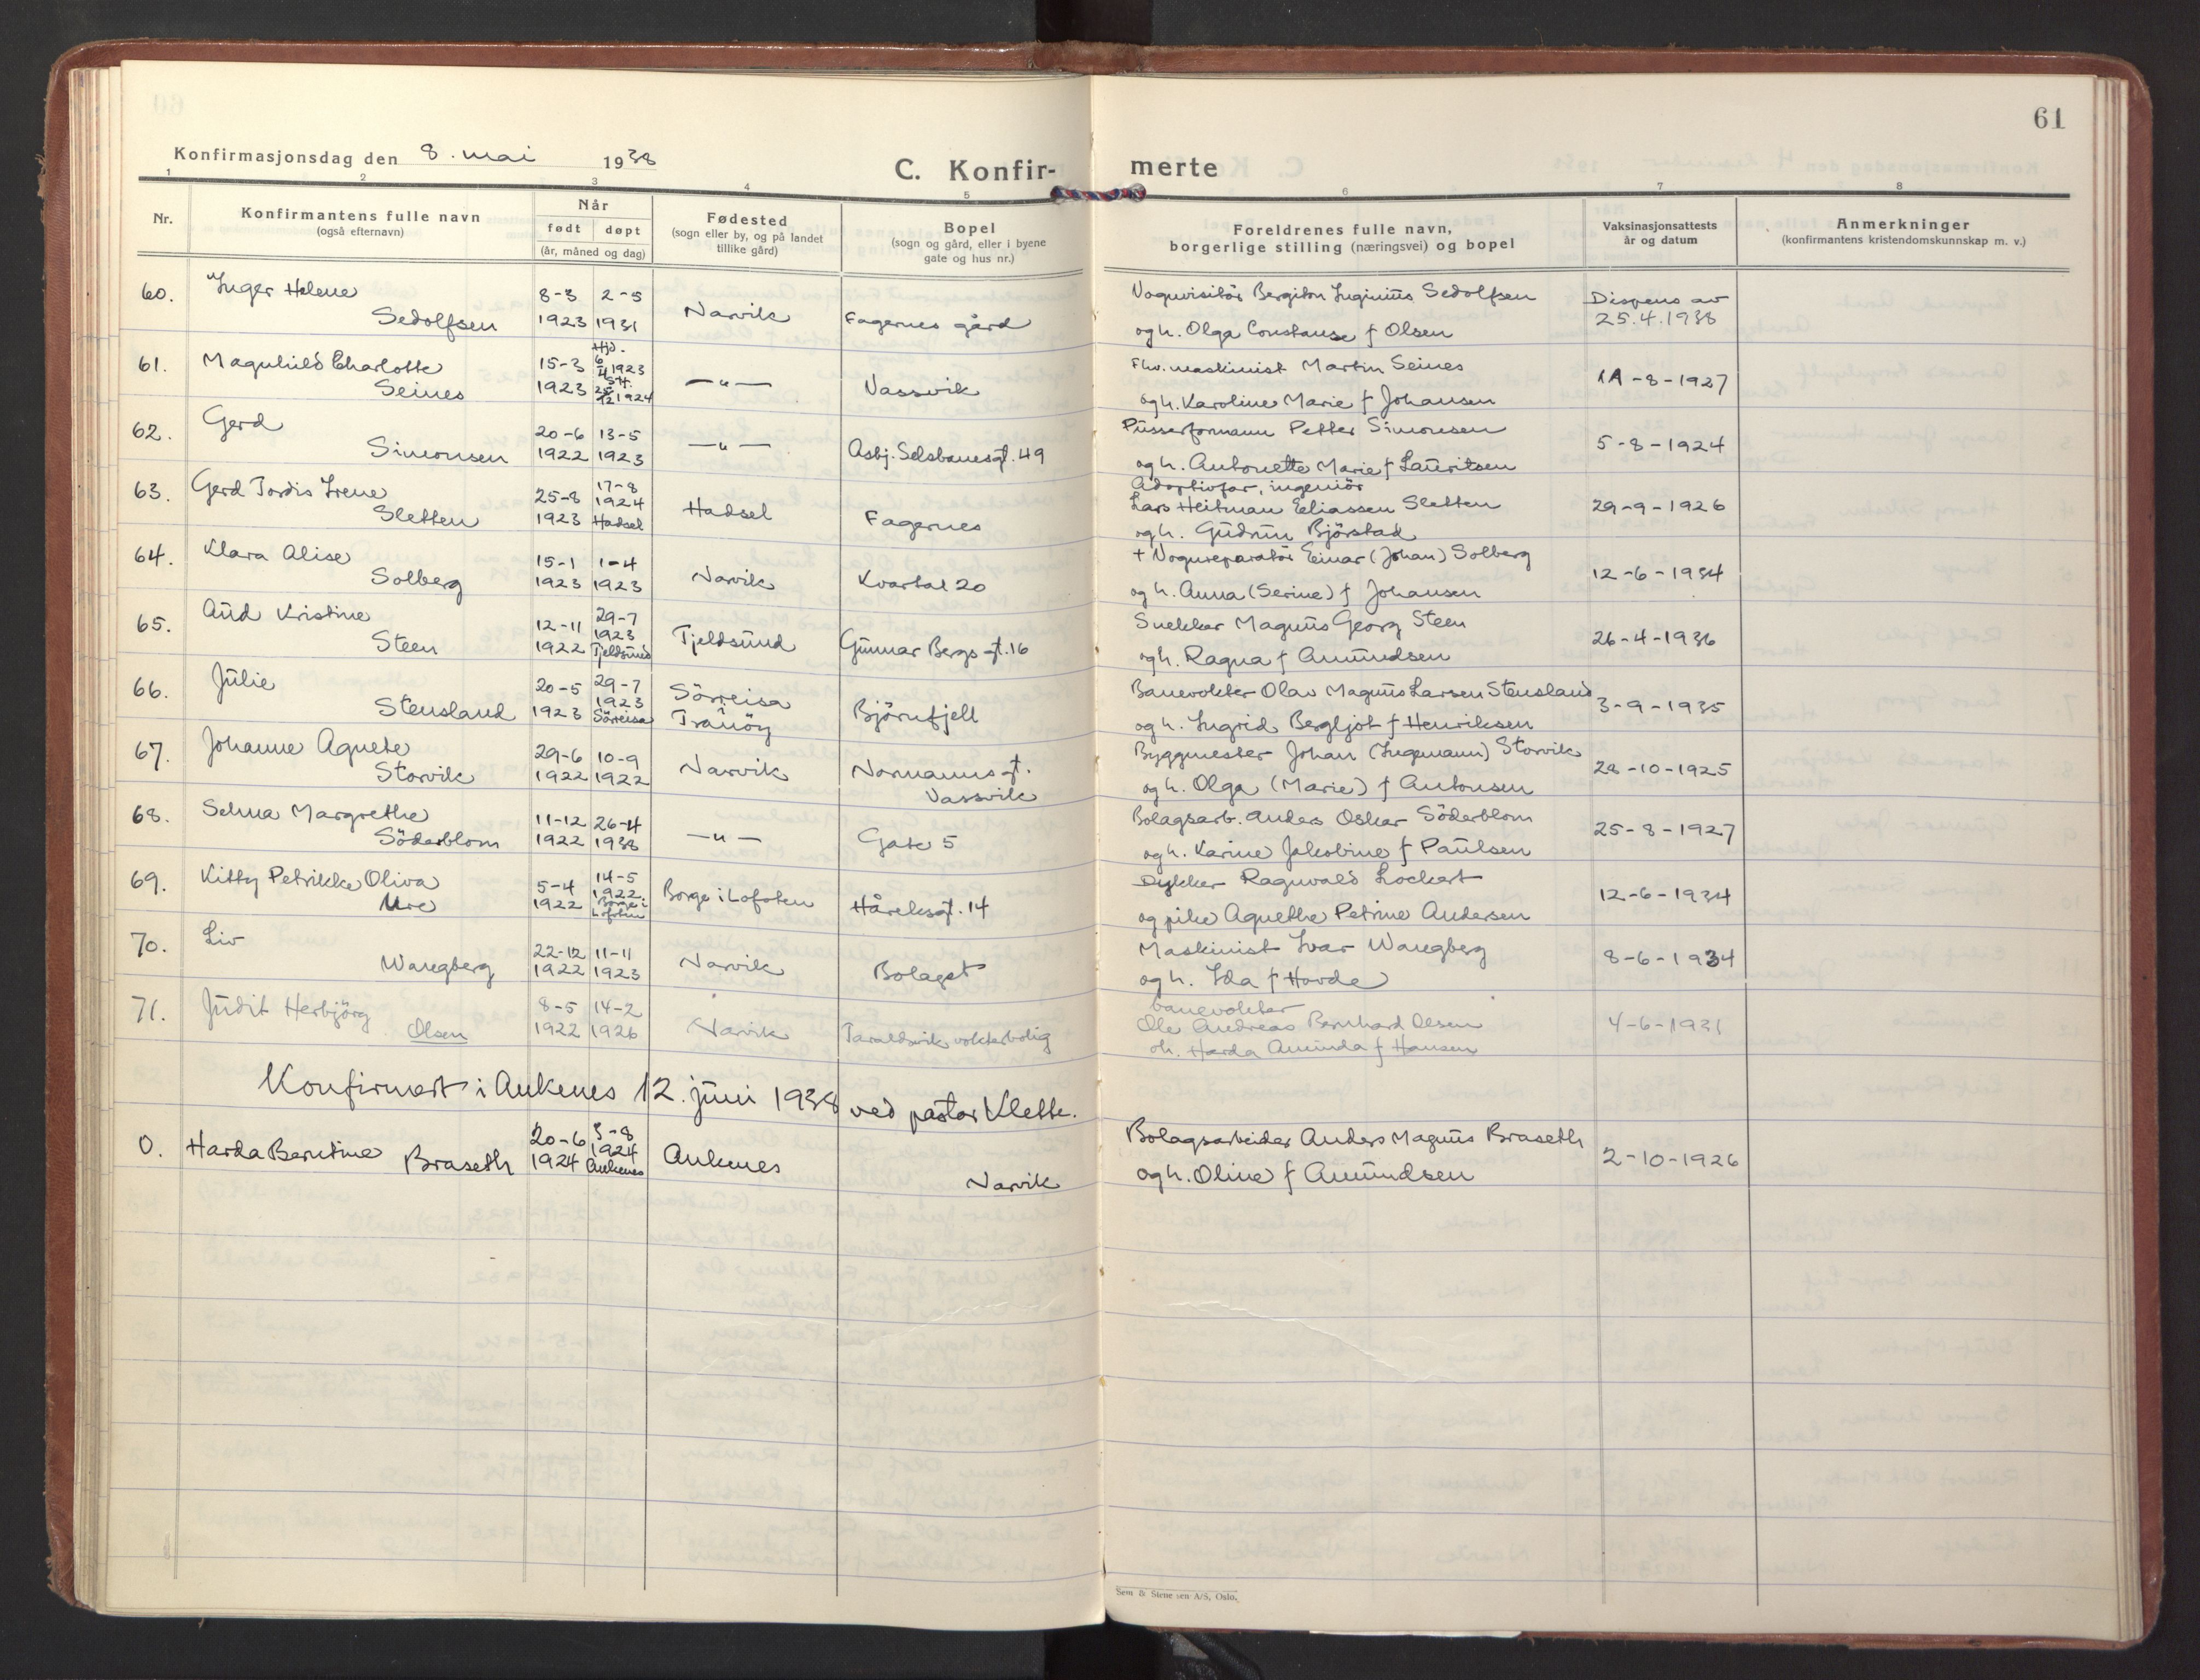 61
Konfirmasjonsdag den 8. mai 1938
C. Konfir- merte
1 2 3 4 5 6 7 8
Nr.
Konfirmantens fulle navn
(også efternavn)
Når
født døpt
(år, måned og dag)
Fødested
(sogn eller by, og på landet
tillike gård)
Bopel
(sogn og gård, eller i byene
gate og hus nr.)
Foreldrenes fulle navn,
borgerlige stilling (næringsvei) og bopel
Vaksinasjonsattests
år og datum
Anmerkninger
(konfirmantens kristendomskunnskap m. v.)
60. Inger Helene 8-3 2-5 Narvik Fagernes gård Vognvisitör Bergiton Sedolfsen Dispens av
Sedolfsen 1923 1931 og h. Olga Constanse f Olsen 25.4.1938
61. Magnhild Charlotte 15-3 Hjd. 6/4 1923 —"— Vassvik Fhv. maskinist Martin Seines 1A-8-1927
Seines 1923 St. 25/12 1924 og h. Karoline Marie f Johansen
62. Gerd 20-6 13-5 —"— Asbj. Selsbanesgt. 49 Pusserformann Petter Simonsen 5-8-1924
Simonsen 1922 1923 og h. Antonette Marie f Lauritsen
63. Gerd Tordis Irene 25-8 17-8 Hadsel Fagernes Adoptivfar, ingeniör
Sletten 1923 1924 Hadsel Lars Heitman Eliassen Sletten 29-9-1926
og h. Gudrun Björstad
64. Klara Alise 15-1 1-4 Narvik Kvartal 20 + Vognreparatör Einar (Johan) Solberg 12-6-1934
Solberg 1923 1923 og h. Anna (Serine) f Johansen
65. Aud Kristine 12-11 29-7 Tjeldsund Gunnar Bergs gt. 16 Snekker Magnus Georg Steen 26-4-1936
Steen 1922 1923 Tjeldsund og h. Ragna f Amundsen
66. Julie 20-5 29-7 Sörreisa Björnfjell Banevokter Olav Magnus Larsen Stensland 3-9-1935
Stensland 1923 1923 Sörreisa i Tranöy og h. Ingrid Bergljot f Henriksen
67. Johanne Agnete 29-6 10-9 Narvik Normannsgt. Byggmester Johan (Ingemann) Storvik 28-10-1925
Storvik 1922 1922 Vassvik og h. Olga (Marie) f Antonsen
68. Selma Margrethe 11-12 26-4 —"— Gate 5 Bolagsarb. Anders Oskar Söderblom 25-8-1927
Söderblom 1922 1938 og h. Karine Jakobine f Paulsen
69. Kitty Petrikke Oliva 5-4 14-5 Borge i Lofoten Håreksgt. 14 Dykker Ragnvald Lockert 12-6-1934
Ure 1922 1922 Borge i Lofoten og pike Agnethe Petrine Andersen
70. Liv 22-12 11-11 Narvik Bolaget Maskinist Ivar Wangberg 8-6-1934
Wangberg 1922 1923 og h. Ida f Hovde
71. Judit Herbjörg 8-5 14-2 Narvik Taraldsvik vokterbolig banevokter
Olsen 1922 1926 Ole Andreas Bernhard Olsen 4-6-1931
oh. Harda Aminda f Hansen
Konfirmert i Ankenes 12. juni 1938 ved pastor Klette.
0. Harda Berntine Braseth 20-6 1924 3-8 1924 Ankenes Ankenes Narvik Bolagsarbeider Anders Magnus Braseth 2-10-1926
og h. Oline f Amundsen
Sem & Stenersen A/S, Oslo.